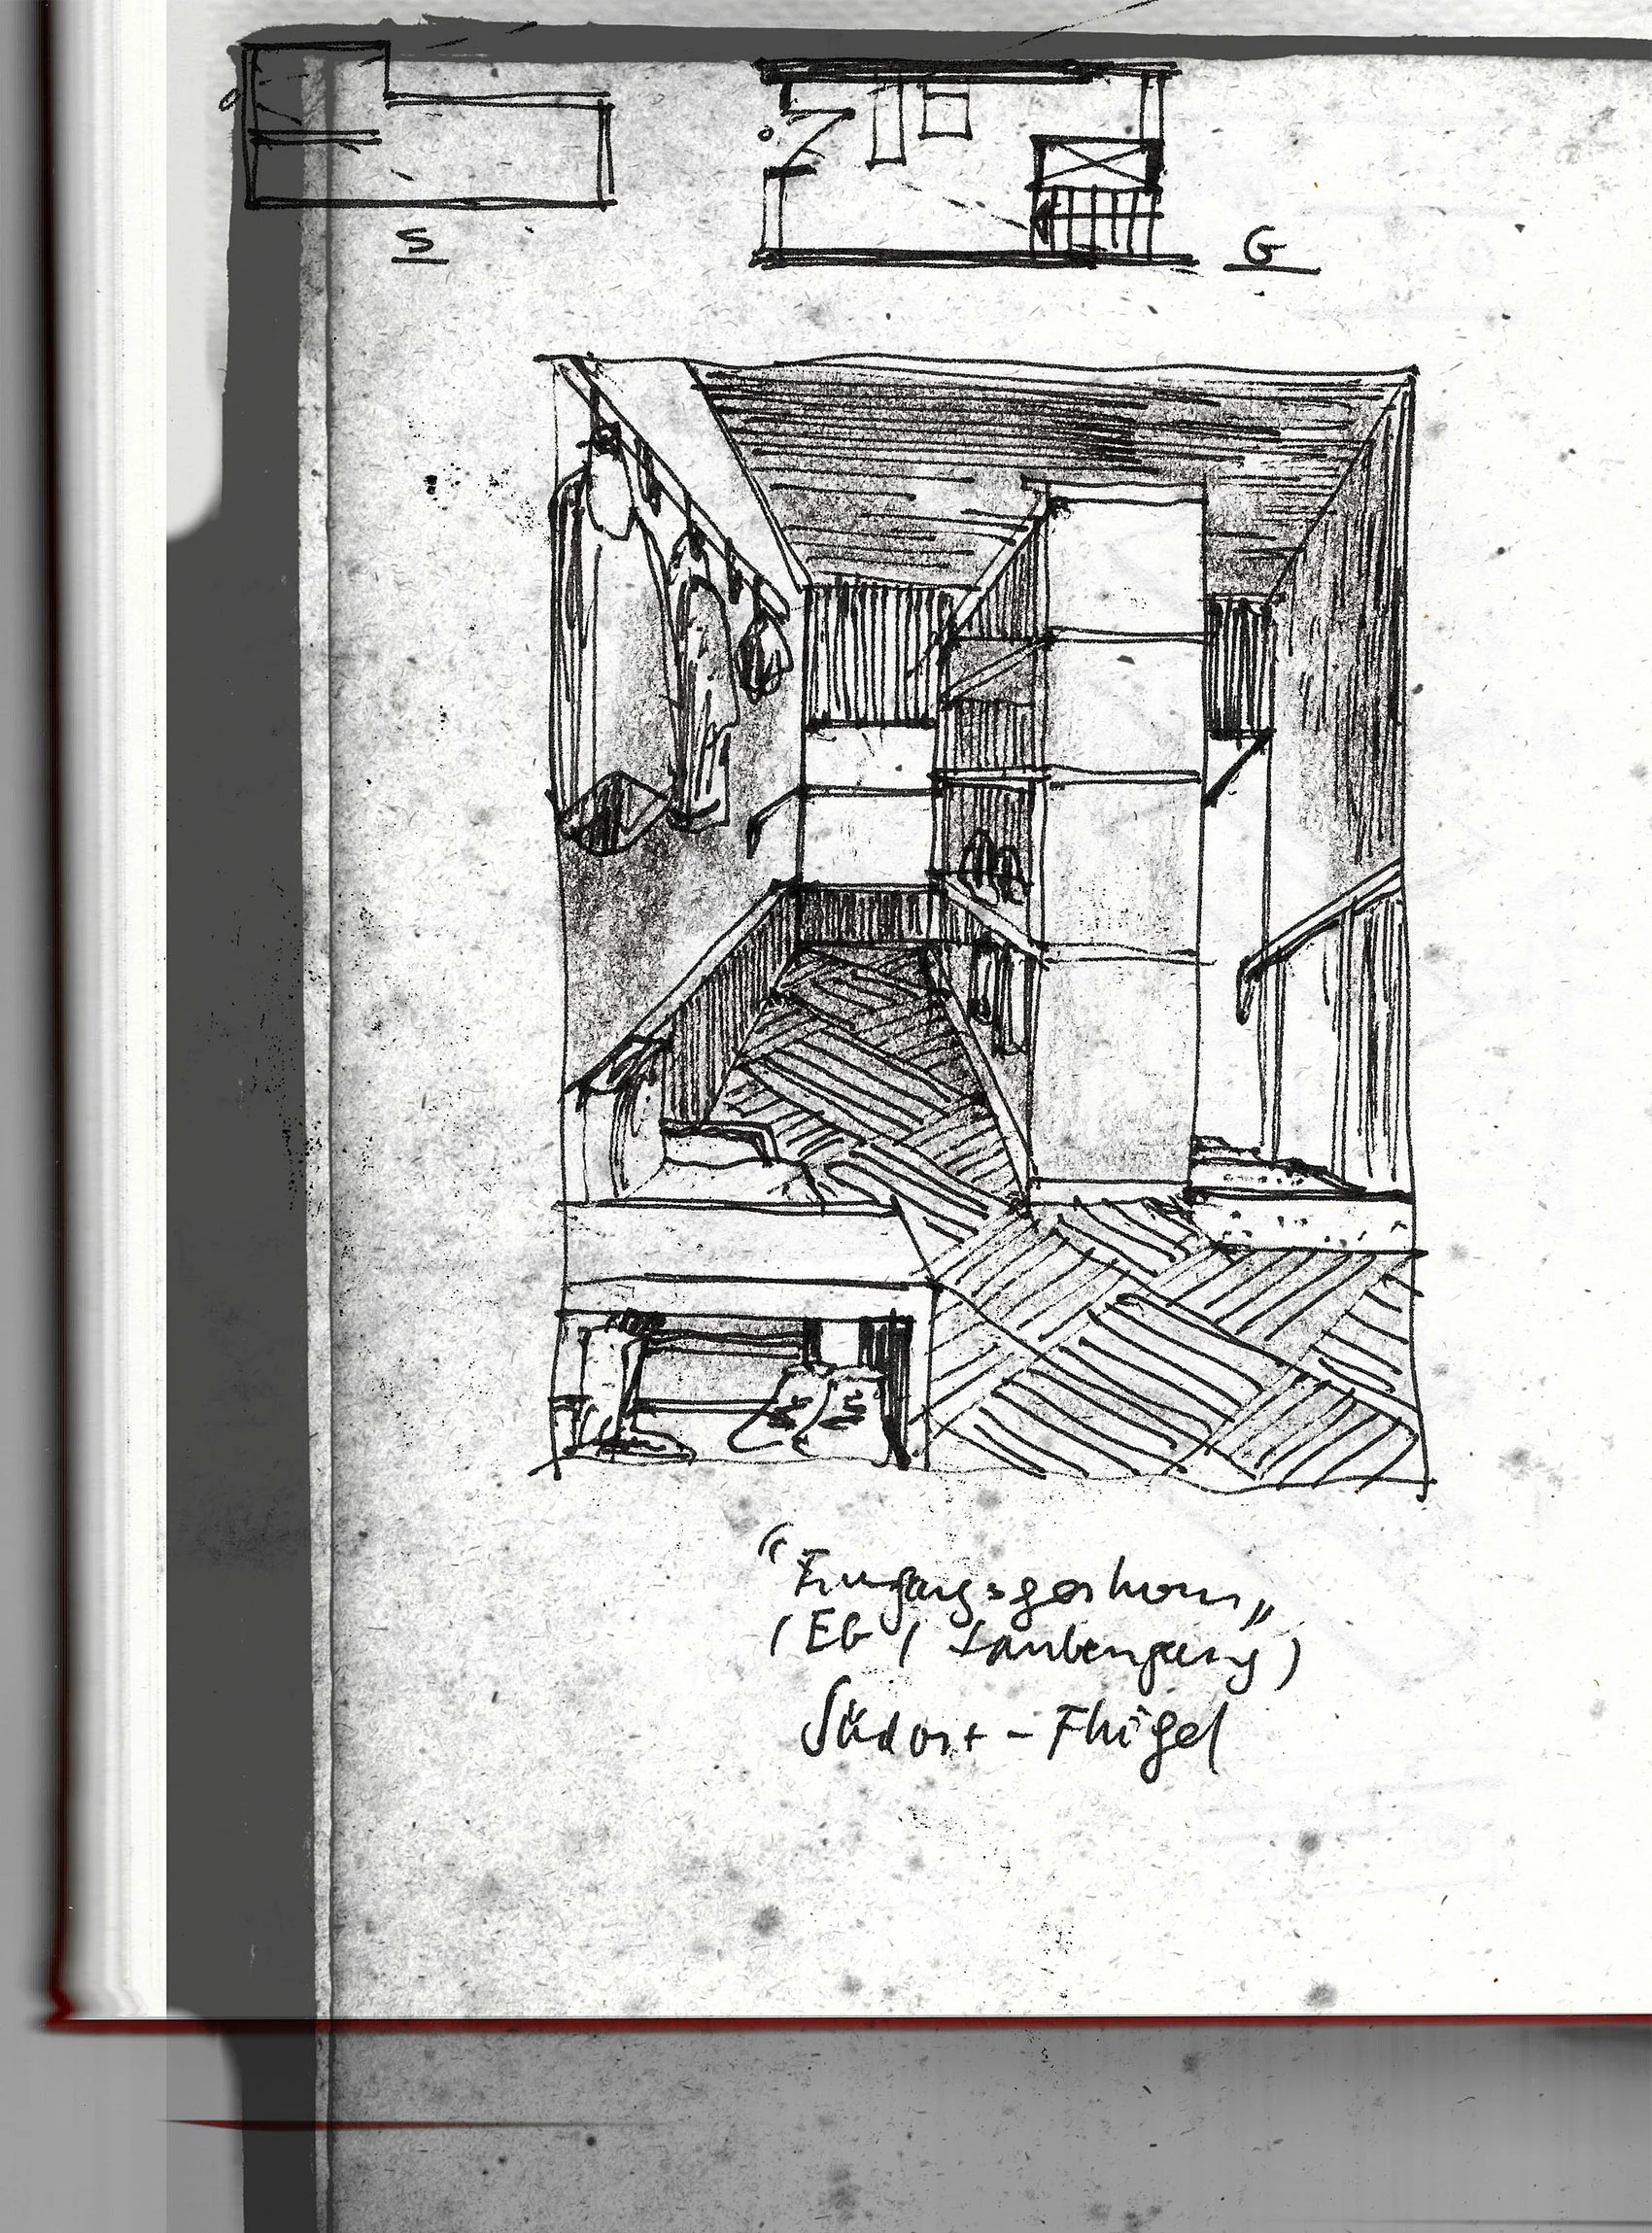 S
G
(EG / Laubengang)
Südost-Flügel